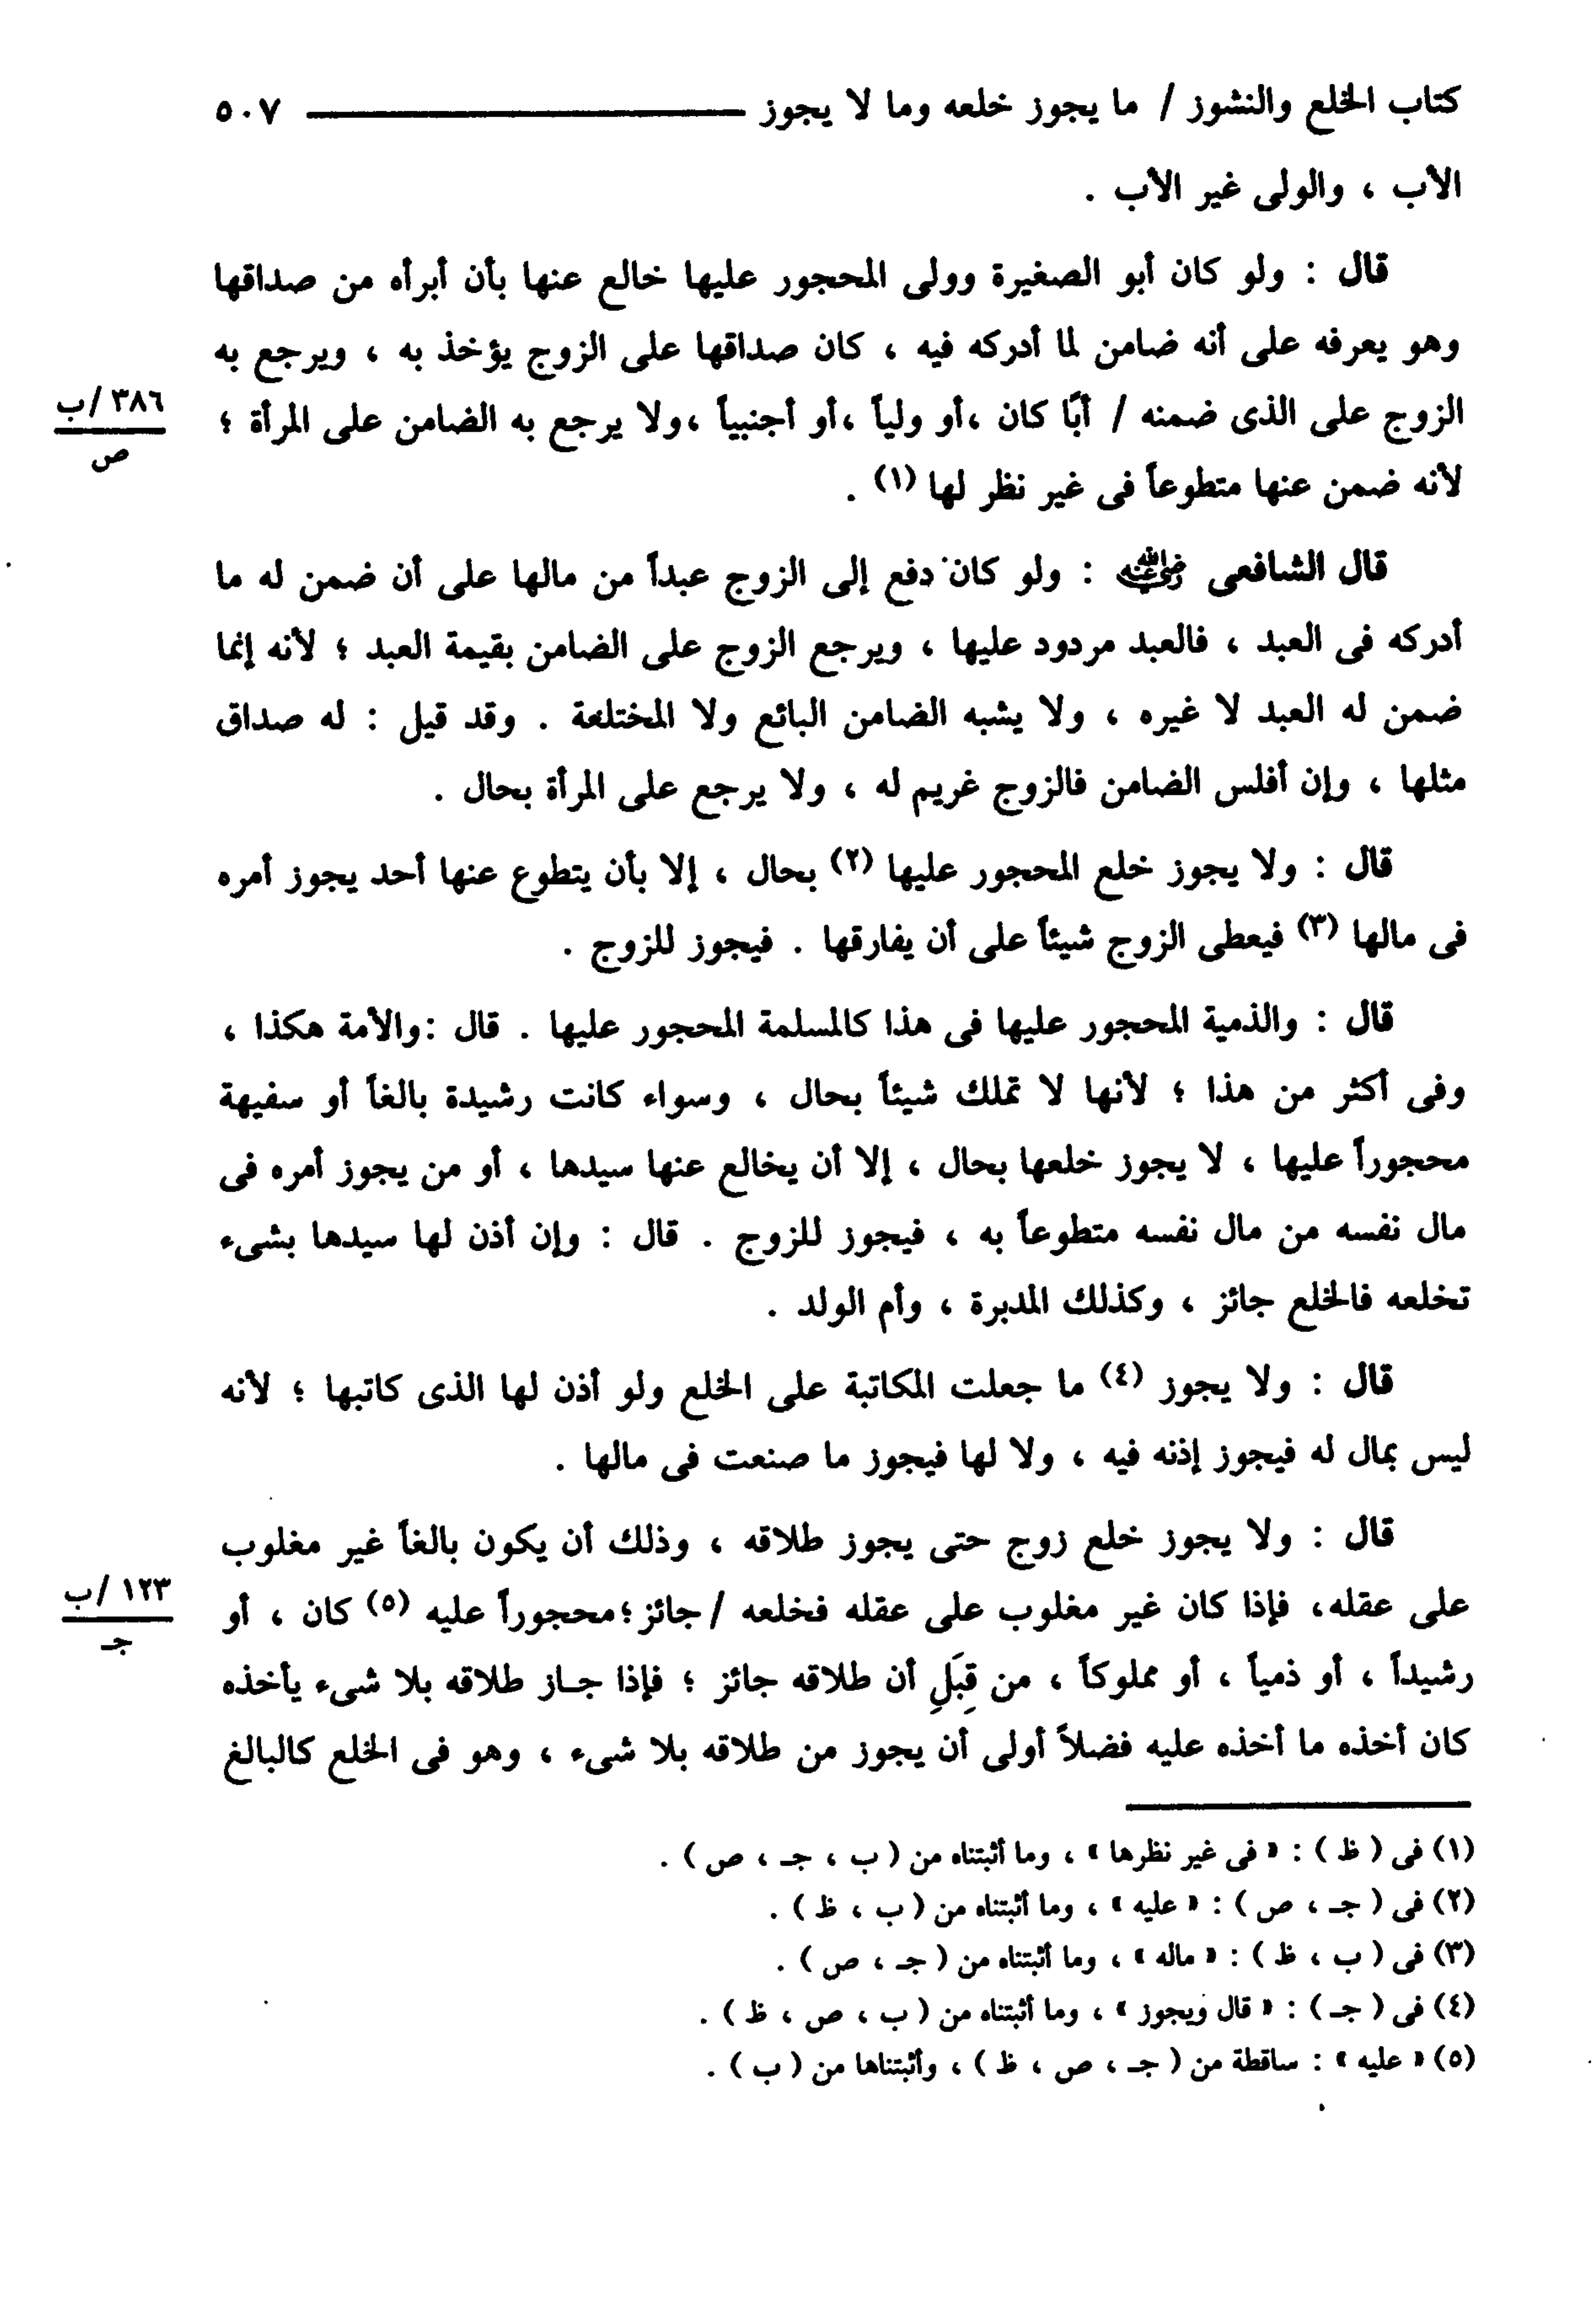 كتاب الخلع والنشوز / ما يجوز خلعه وما لا يجوز ٥٠٧
الأب ، والولى غير الأب .
قال : ولو كان أبو الصغيرة وولى المحجور عليها خالع عنها بأن أبرأه من صداقها
وهو يعرفه على أنه ضامن لما أدركه فيه ، كان صداقها على الزوج يؤخذ به ، ويرجع به
الزوج على الذى ضمنه / أبًا كان ،أو ولياً ،أو أجنبياً ،ولا يرجع به الضامن على المرأة ؛
٣٨٦/ب
ص
لأنه ضمن عنها متطوعاً فى غير نظر لها (١) .
قال الشافعى رضي الله عنه : ولو كان دفع إلى الزوج عبداً من مالها على أن ضمن له ما
أدركه فى العبد ، فالعبد مردود عليها ، ويرجع الزوج على الضامن بقيمة العبد ؛ لأنه إنما
ضمن له العبد لا غيره ، ولا يشبه الضامن البائع ولا المختلعة . وقد قيل : له صداق
مثلها ، وإن أفلس الضامن فالزوج غريم له ، ولا يرجع على المرأة بحال .
قال : ولا يجوز خلع المحجور عليها (٢) بحال ، إلا بأن يتطوع عنها أحد يجوز أمره
فى مالها (٣) فيعطى الزوج شيئاً على أن يفارقها . فيجوز للزوج .
قال : والذمية المحجور عليها فى هذا كالمسلمة المحجور عليها . قال :والأمة هكذا ،
وفى أكثر من هذا ؛ لأنها لا تملك شيئاً بحال ، وسواء كانت رشيدة بالغاً أو سفيهة
محجوراً عليها ، لا يجوز خلعها بحال ، إلا أن يخالع عنها سيدها ، أو من يجوز أمره فى
مال نفسه من مال نفسه متطوعاً به ، فيجوز للزوج . قال : وإن أذن لها سيدها بشىء
تخلعه فالخلع جائز ، وكذلك المدبرة ، وأم الولد .
قال : ولا يجوز (٤) ما جعلت المكاتبة على الخلع ولو أذن لها الذى كاتبها ؛ لأنه
ليس بمال له فيجوز إذنه فيه ، ولا لها فيجوز ما صنعت فى مالها .
قال : ولا يجوز خلع زوج حتى يجوز طلاقه ، وذلك أن يكون بالغاً غير مغلوب
على عقله، فإذا كان غير مغلوب على عقله فخلعه /جائز؛محجوراً عليه (٥) كان ، أو
١٢٣/ب
جـ
رشيداً ، أو ذمياً ، أو مملوكاً ، من قِبَلِ أن طلاقه جائز ؛ فإذا جـاز طلاقه بلا شىء يأخذه
كان أخذه ما أخذه عليه فضلاً أولى أن يجوز من طلاقه بلا شىء ، وهو فى الخلع كالبالغ
(١) فى ( ظ ) : « فى غير نظرها » ، وما أثبتناه من ( ب ، جـ ، ص ) .
(٢) فى ( جـ ، ص ) : « عليه » ، وما أثبتناه من ( ب ، ظ ) .
(٣) فى ( ب ، ظ ) : « ماله » ، وما أثبتناه من ( جـ ، ص ) .
(٤) فى ( جـ ) : « قال ويجوز » ، وما أثبتناه من ( ب ، ص ، ظ ) .
(٥) « عليه » : ساقطة من ( جـ ، ص ، ظ ) ، وأثبتناها من ( ب ) .